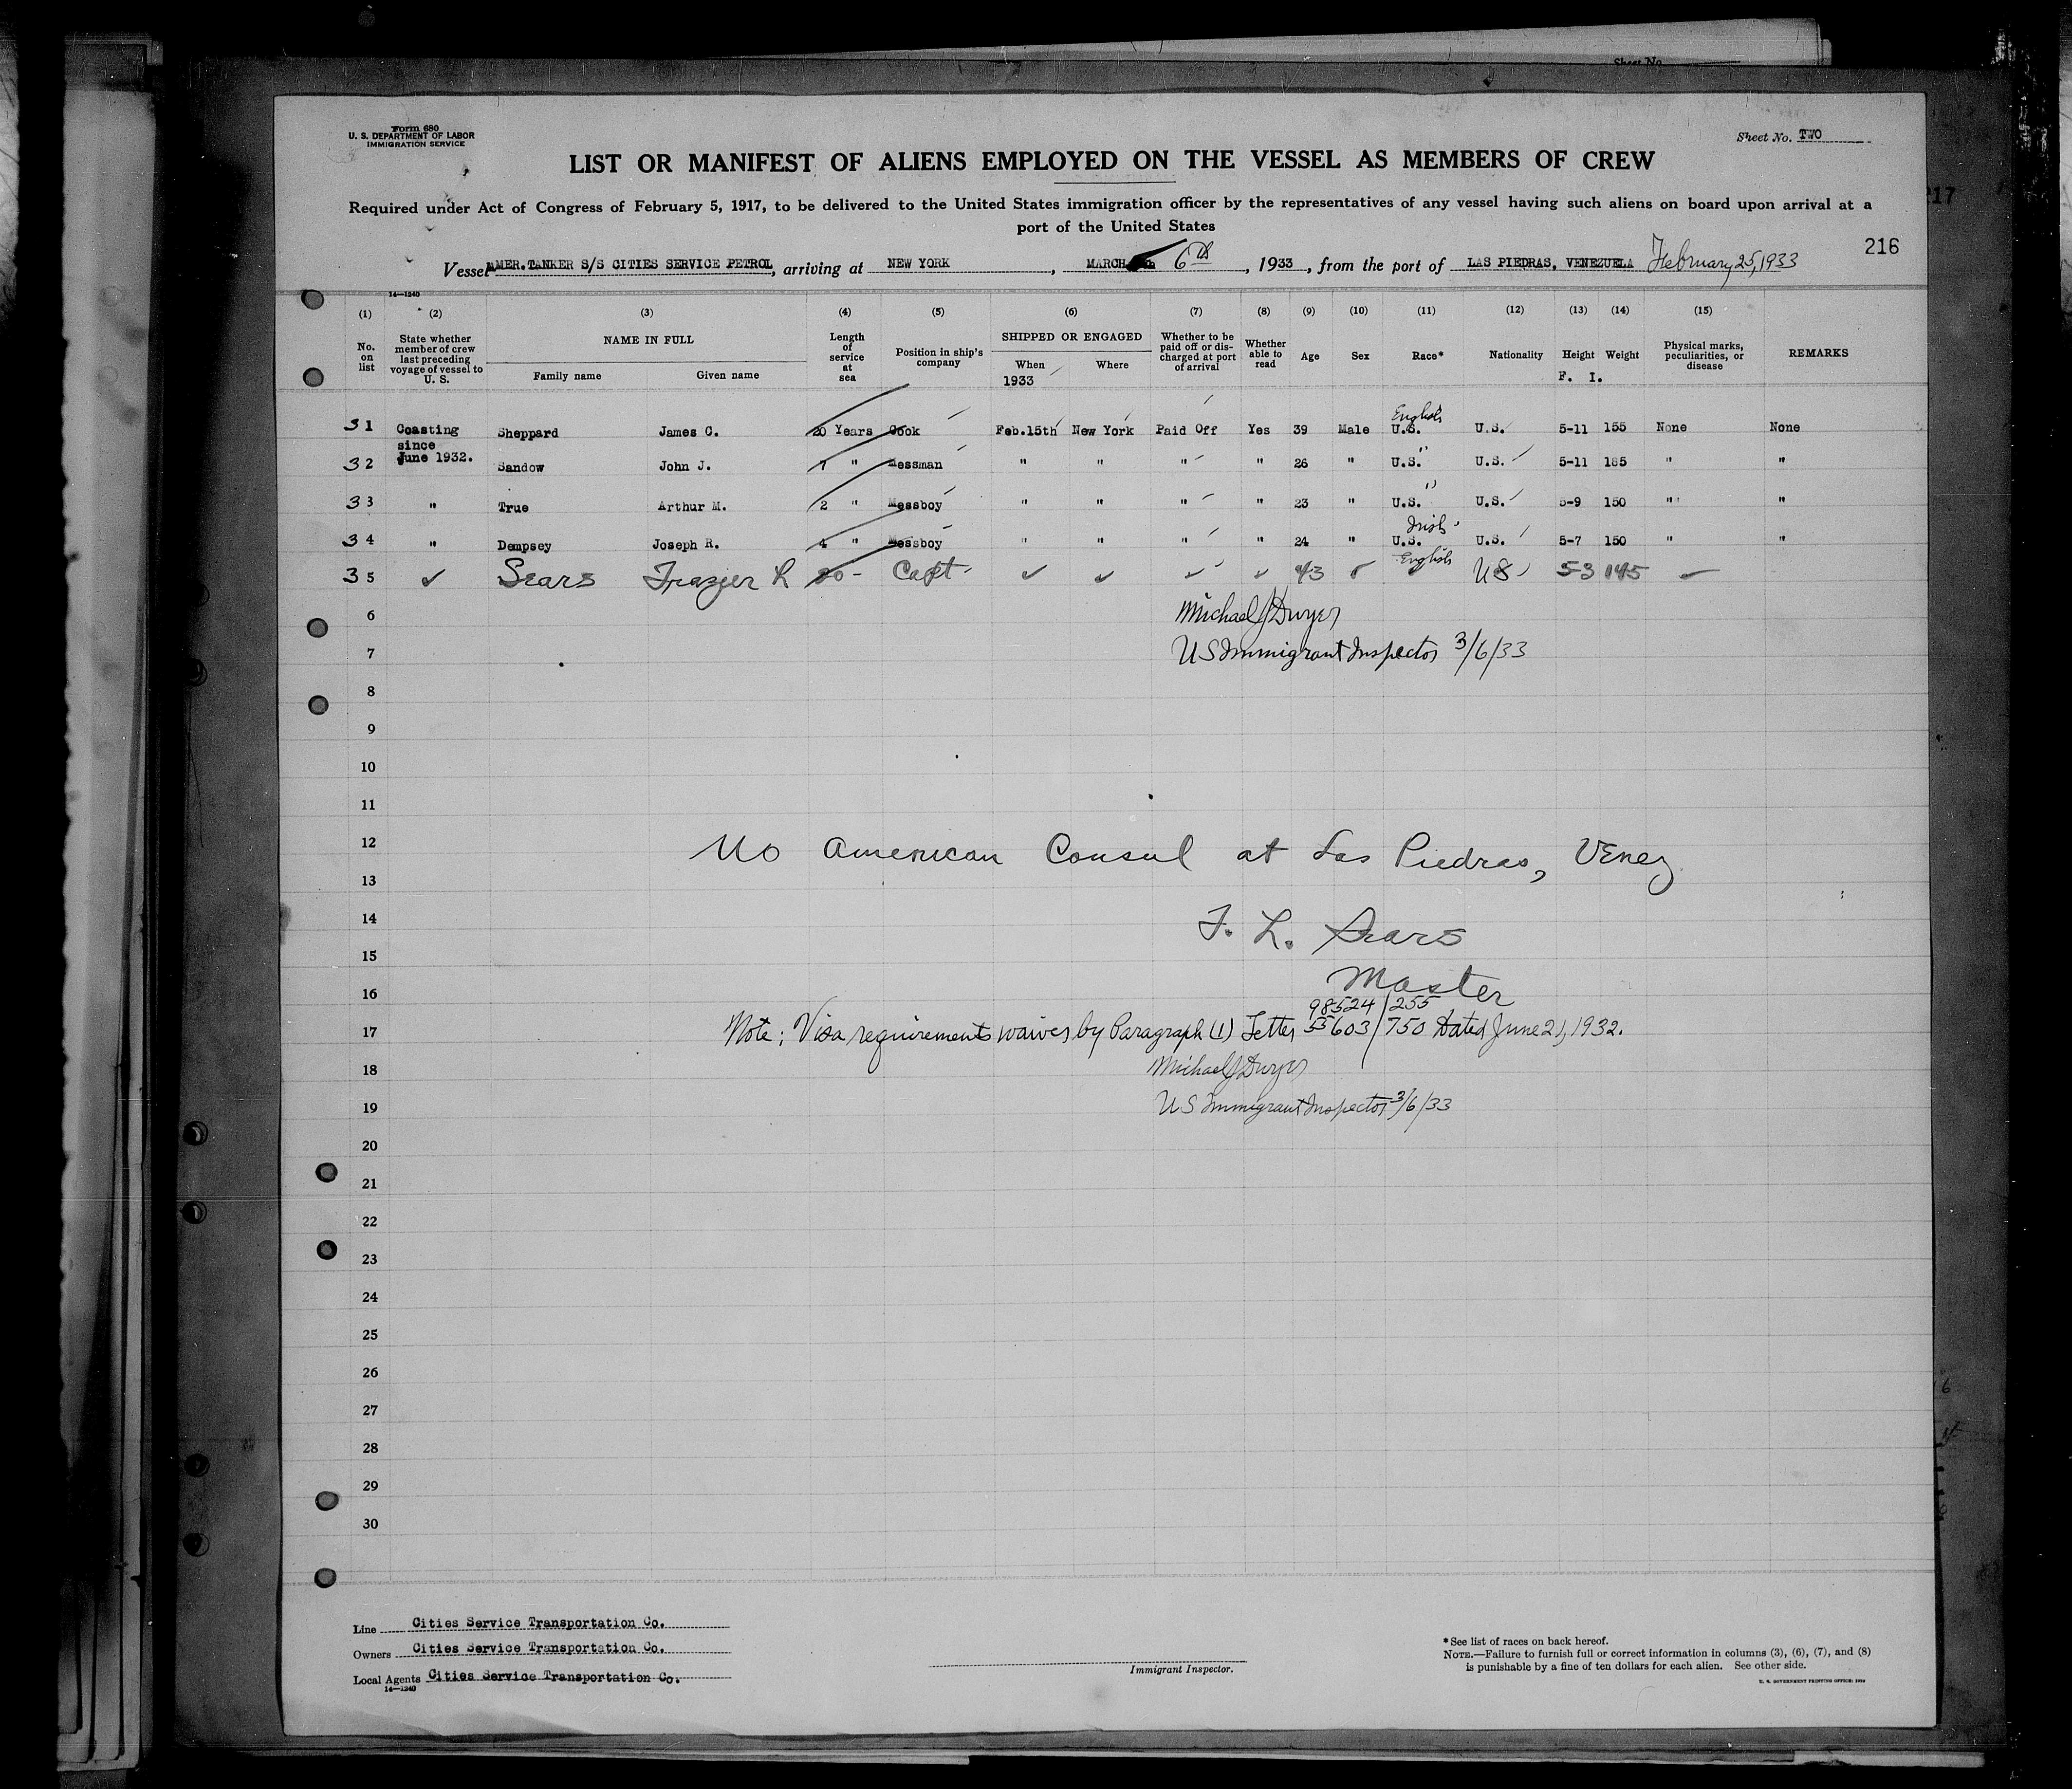 Sheet No.
Form 680
U. S. DEPARTMENT OF LABOR
IMMIGRATION SERVICE
Sheet No. TWO
LIST OR MANIFEST OF ALIENS EMPLOYED ON THE VESSEL AS MEMBERS OF CREW
217
Required under Act of Congress of February 5, 1917, to be delivered to the United States immigration officer by the representatives of any vessel having such aliens on board upon arrival at a
port of the United States
216
Vessel AMER.TANKER S/S CITIES SERVICE PETROL, arriving at NEW YORK, MARCH 6th, 1933, from the port of LAS PIEDRAS, VENEZUELA February 25, 1933
14—1240
(1) (2) (3) (4) (5) (6) (7) (8) (9) (10) (11) (12) (13) (14) (15)
No. on list
State whether member of crew last preceding voyage of vessel to U. S.
NAME IN FULL
Family name
Given name
Length of service at sea
Position in ship's company
SHIPPED OR ENGAGED
When
1933
Where
Whether to be paid off or discharged at port of arrival
Whether able to read
Age
Sex
Race*
Nationality
Height
F. I.
Weight
Physical marks, peculiarities, or disease
REMARKS
31 Coasting since June 1932. Sheppard James C. 20 Years Cook Feb.15th New York Paid Off Yes 39 Male U.S. English U.S. 5-11 155 None None
32 Sandow John J. 7 " Messman " " " " 26 " U.S. " U.S. 5-11 185 " "
33 " True Arthur M. 2 " Messboy " " " " 23 " U.S. " U.S. 5-9 150 " "
34 " Dempsey Joseph R. 4 " Messboy " " " " 24 " U.S. Irish U.S. 5-7 150 " "
35 ✓ Sears Frazier L 20 - Capt ✓ ✓ ✓ ✓ 43 English US 53 145
6 Michael J Dwyer
7 US Immigrant Inspector 3/6/33
8
9
10
11
12 No American Consul at Las Piedras, Venez
13
14 F. L. Sears
15
16 Master
98524/255
17 Note; Visa requirements waived by Paragraph (1) Letter 55603/750 Dated June 21, 1932.
18 Michael J Dwyer
19 US Immigrant Inspector 3/6/33
20
21
22
23
24
25
26
27
28
29
30
Line Cities Service Transportation Co.
Owners Cities Service Transportation Co.
Local Agents Cities Service Transportation Co.
14—1240
Immigrant Inspector.
*See list of races on back hereof.
NOTE.—Failure to furnish full or correct information in columns (3), (6), (7), and (8)
is punishable by a fine of ten dollars for each alien. See other side.